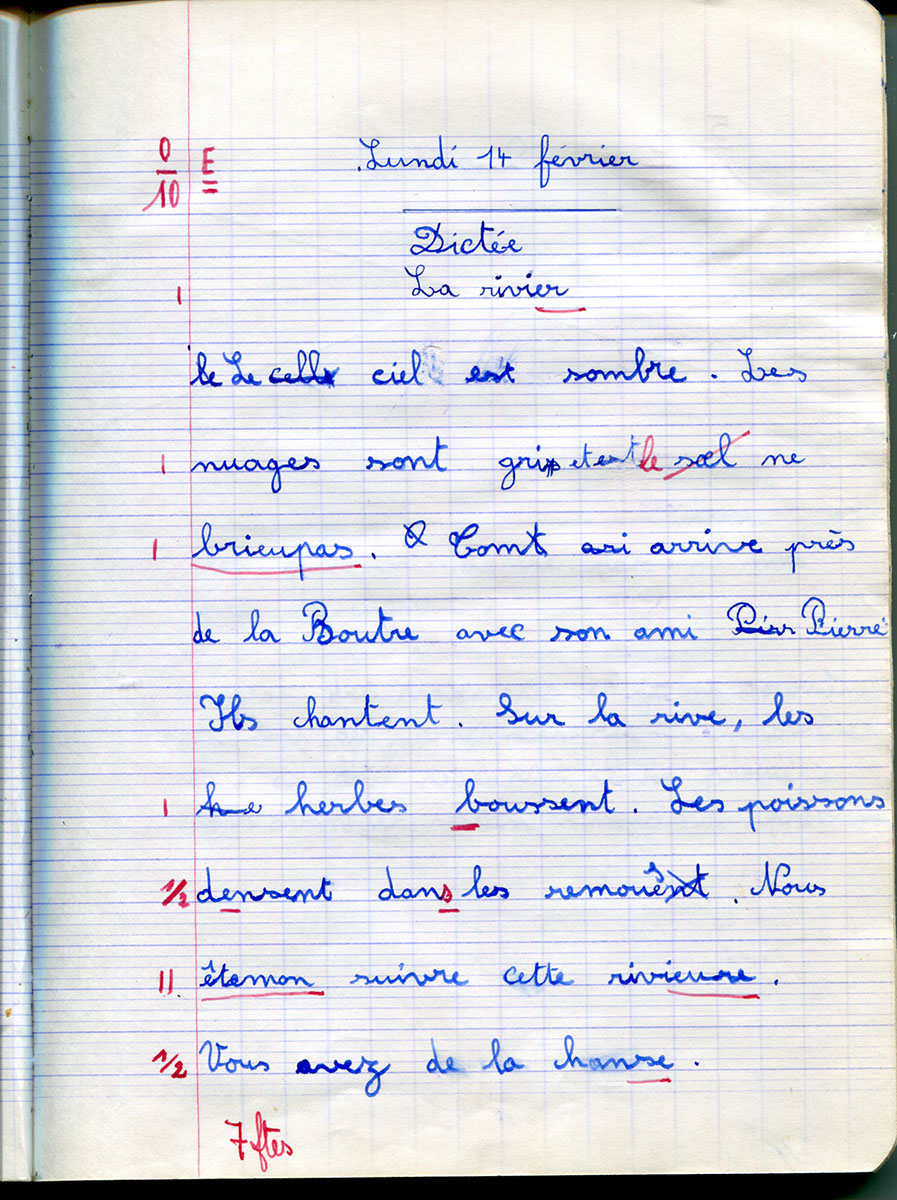 0/10 E Lundi 14 février
Dictée
1 La rivier
le Le ciel est sombre. Les
1 nuages sont gris et est le sael ne
1 brieupas. Tomt ari arrive près
de la Boutre avec son ami Pierr Pierre
Ils chantent. Sur la rive, les
1 he herbes boussent. Les poissons
1/2 densent dans les remous. Nous
11 êtemon suivre cette rivieure.
1/2 Vous avez de la chanse.
7 ftes